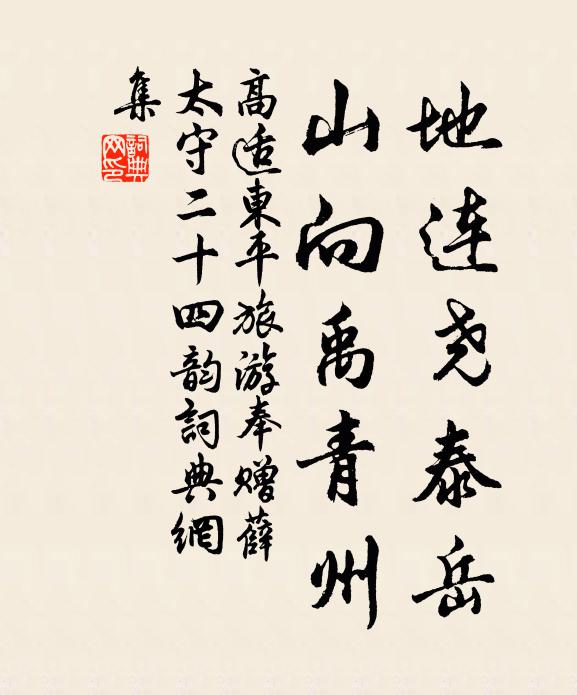 地连尧泰岳
山向禹青州
高适東平旅游奉赠薛
太守二十四韵詞典網
集
詞典
网印